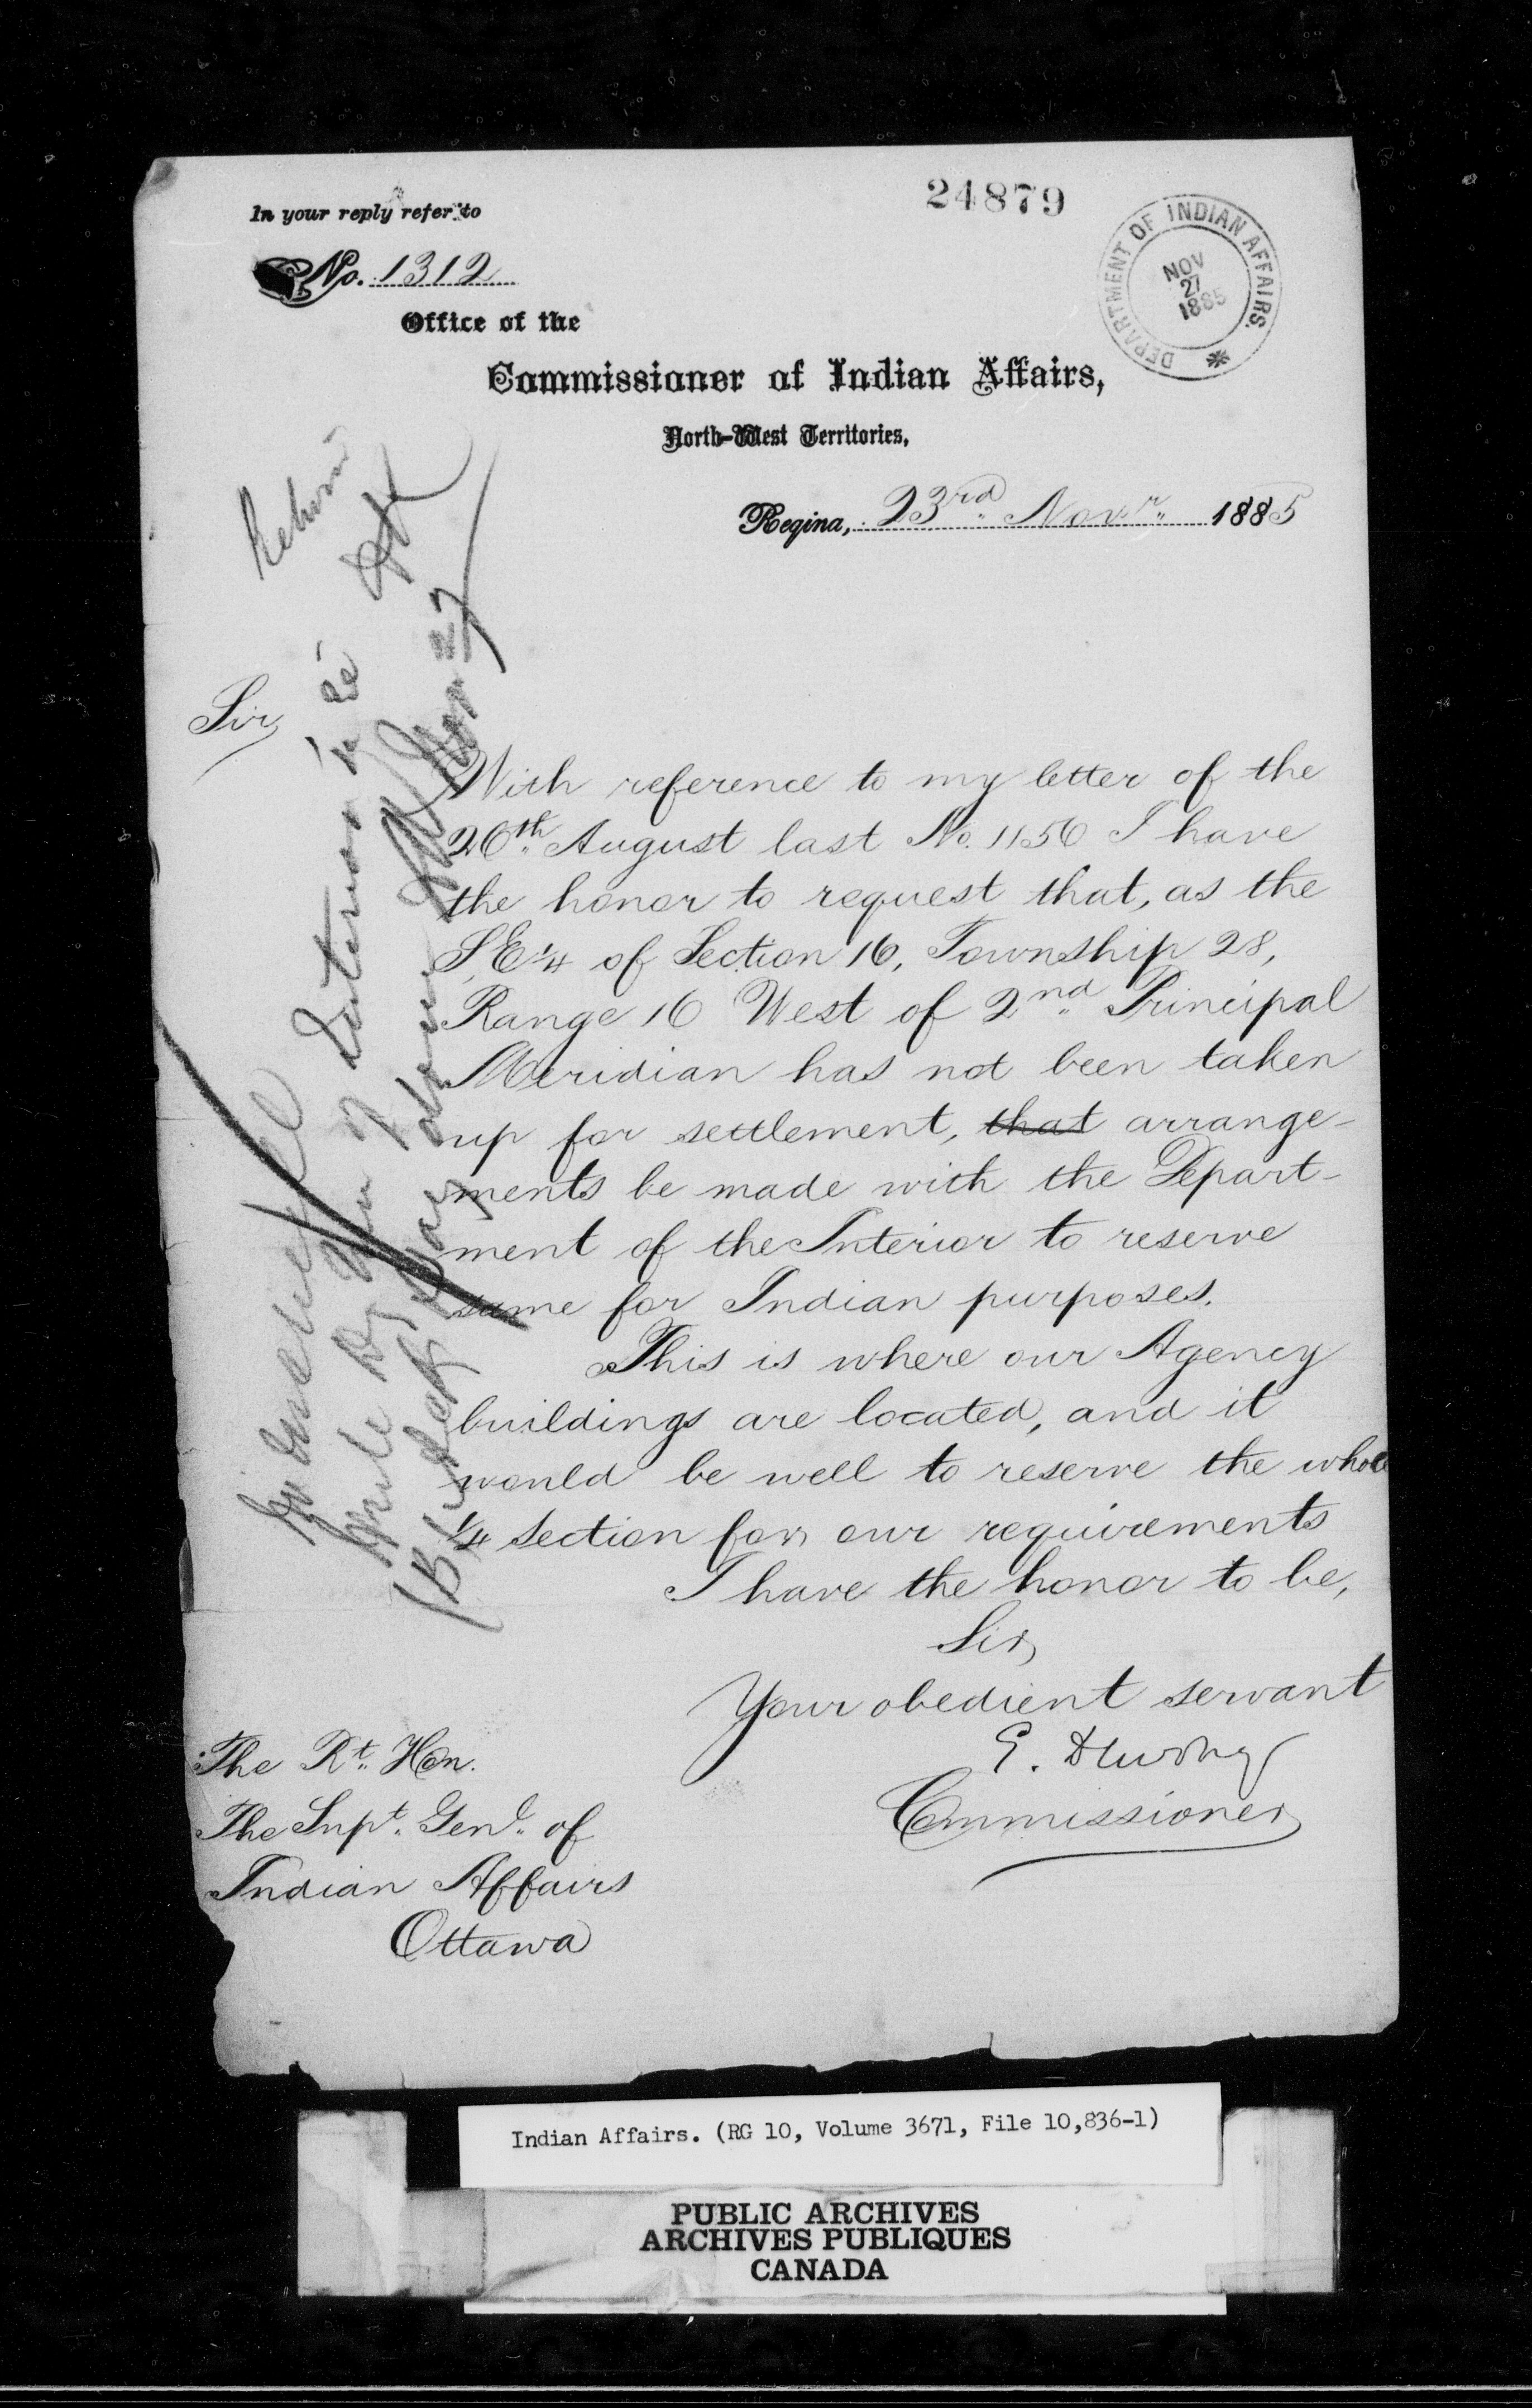 24879
In your reply refer to
No. 1312
DEPARTMENT OF INDIAN AFFAIRS.
NOV
27
1885
Office of the
Commissioner of Indian Affairs,
North-West Territories,
Regina, 23rd Novr. 1885
Sir,
With reference to my letter of the
26th August last No. 1156 I have
the honor to request that, as the
S.E 1/4 of Section 16, Township 28,
Range 16 West of 2nd Principal
Meridian has not been taken
up for settlement, that arrange-
ments be made with the Depart-
ment of the Interior to reserve
same for Indian purposes.
This is where our Agency
buildings are located, and it
would be well to reserve the whole
1/4 section for our requirements
I have the honor to be,
Sir,
Your obedient servant
E. Dewdney
Commissioner
The Rt. Hon.
The Supt. Genl. of
Indian Affairs
Ottawa
Write Dy Min of Interior
Indian Affairs. (RG 10, Volume 3671, File 10,836-1)
PUBLIC ARCHIVES
ARCHIVES PUBLIQUES
CANADA